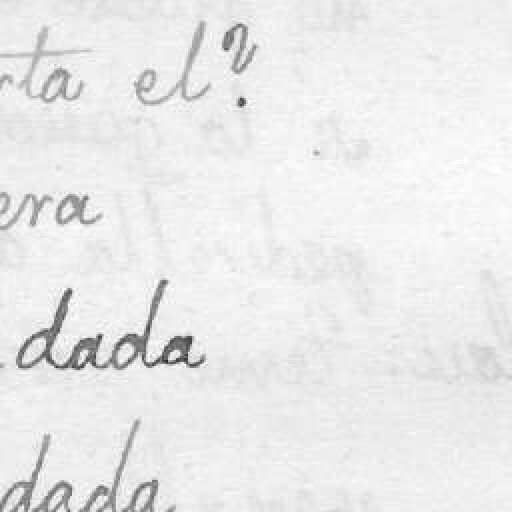 rta el?
era
dada
dada